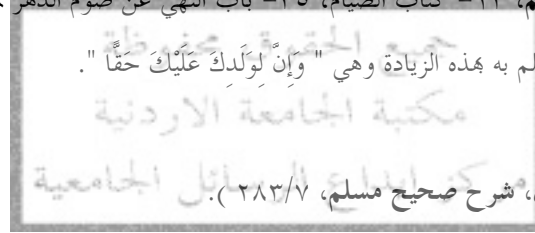 ١٣- كتاب الصيام، ٣٥- باب النهي عن صوم الدهر
لم به بهذه الزيادة وهي " وَإِنَّ لِوَلَدِكَ عَلَيْكَ حَقًّا ".
جميع الحقوق محفوظة
مكتبة الجامعة الاردنية
مركز ايداع الرسائل الجامعية
، شرح صحيح مسلم، ٢٨٣/٧ ).